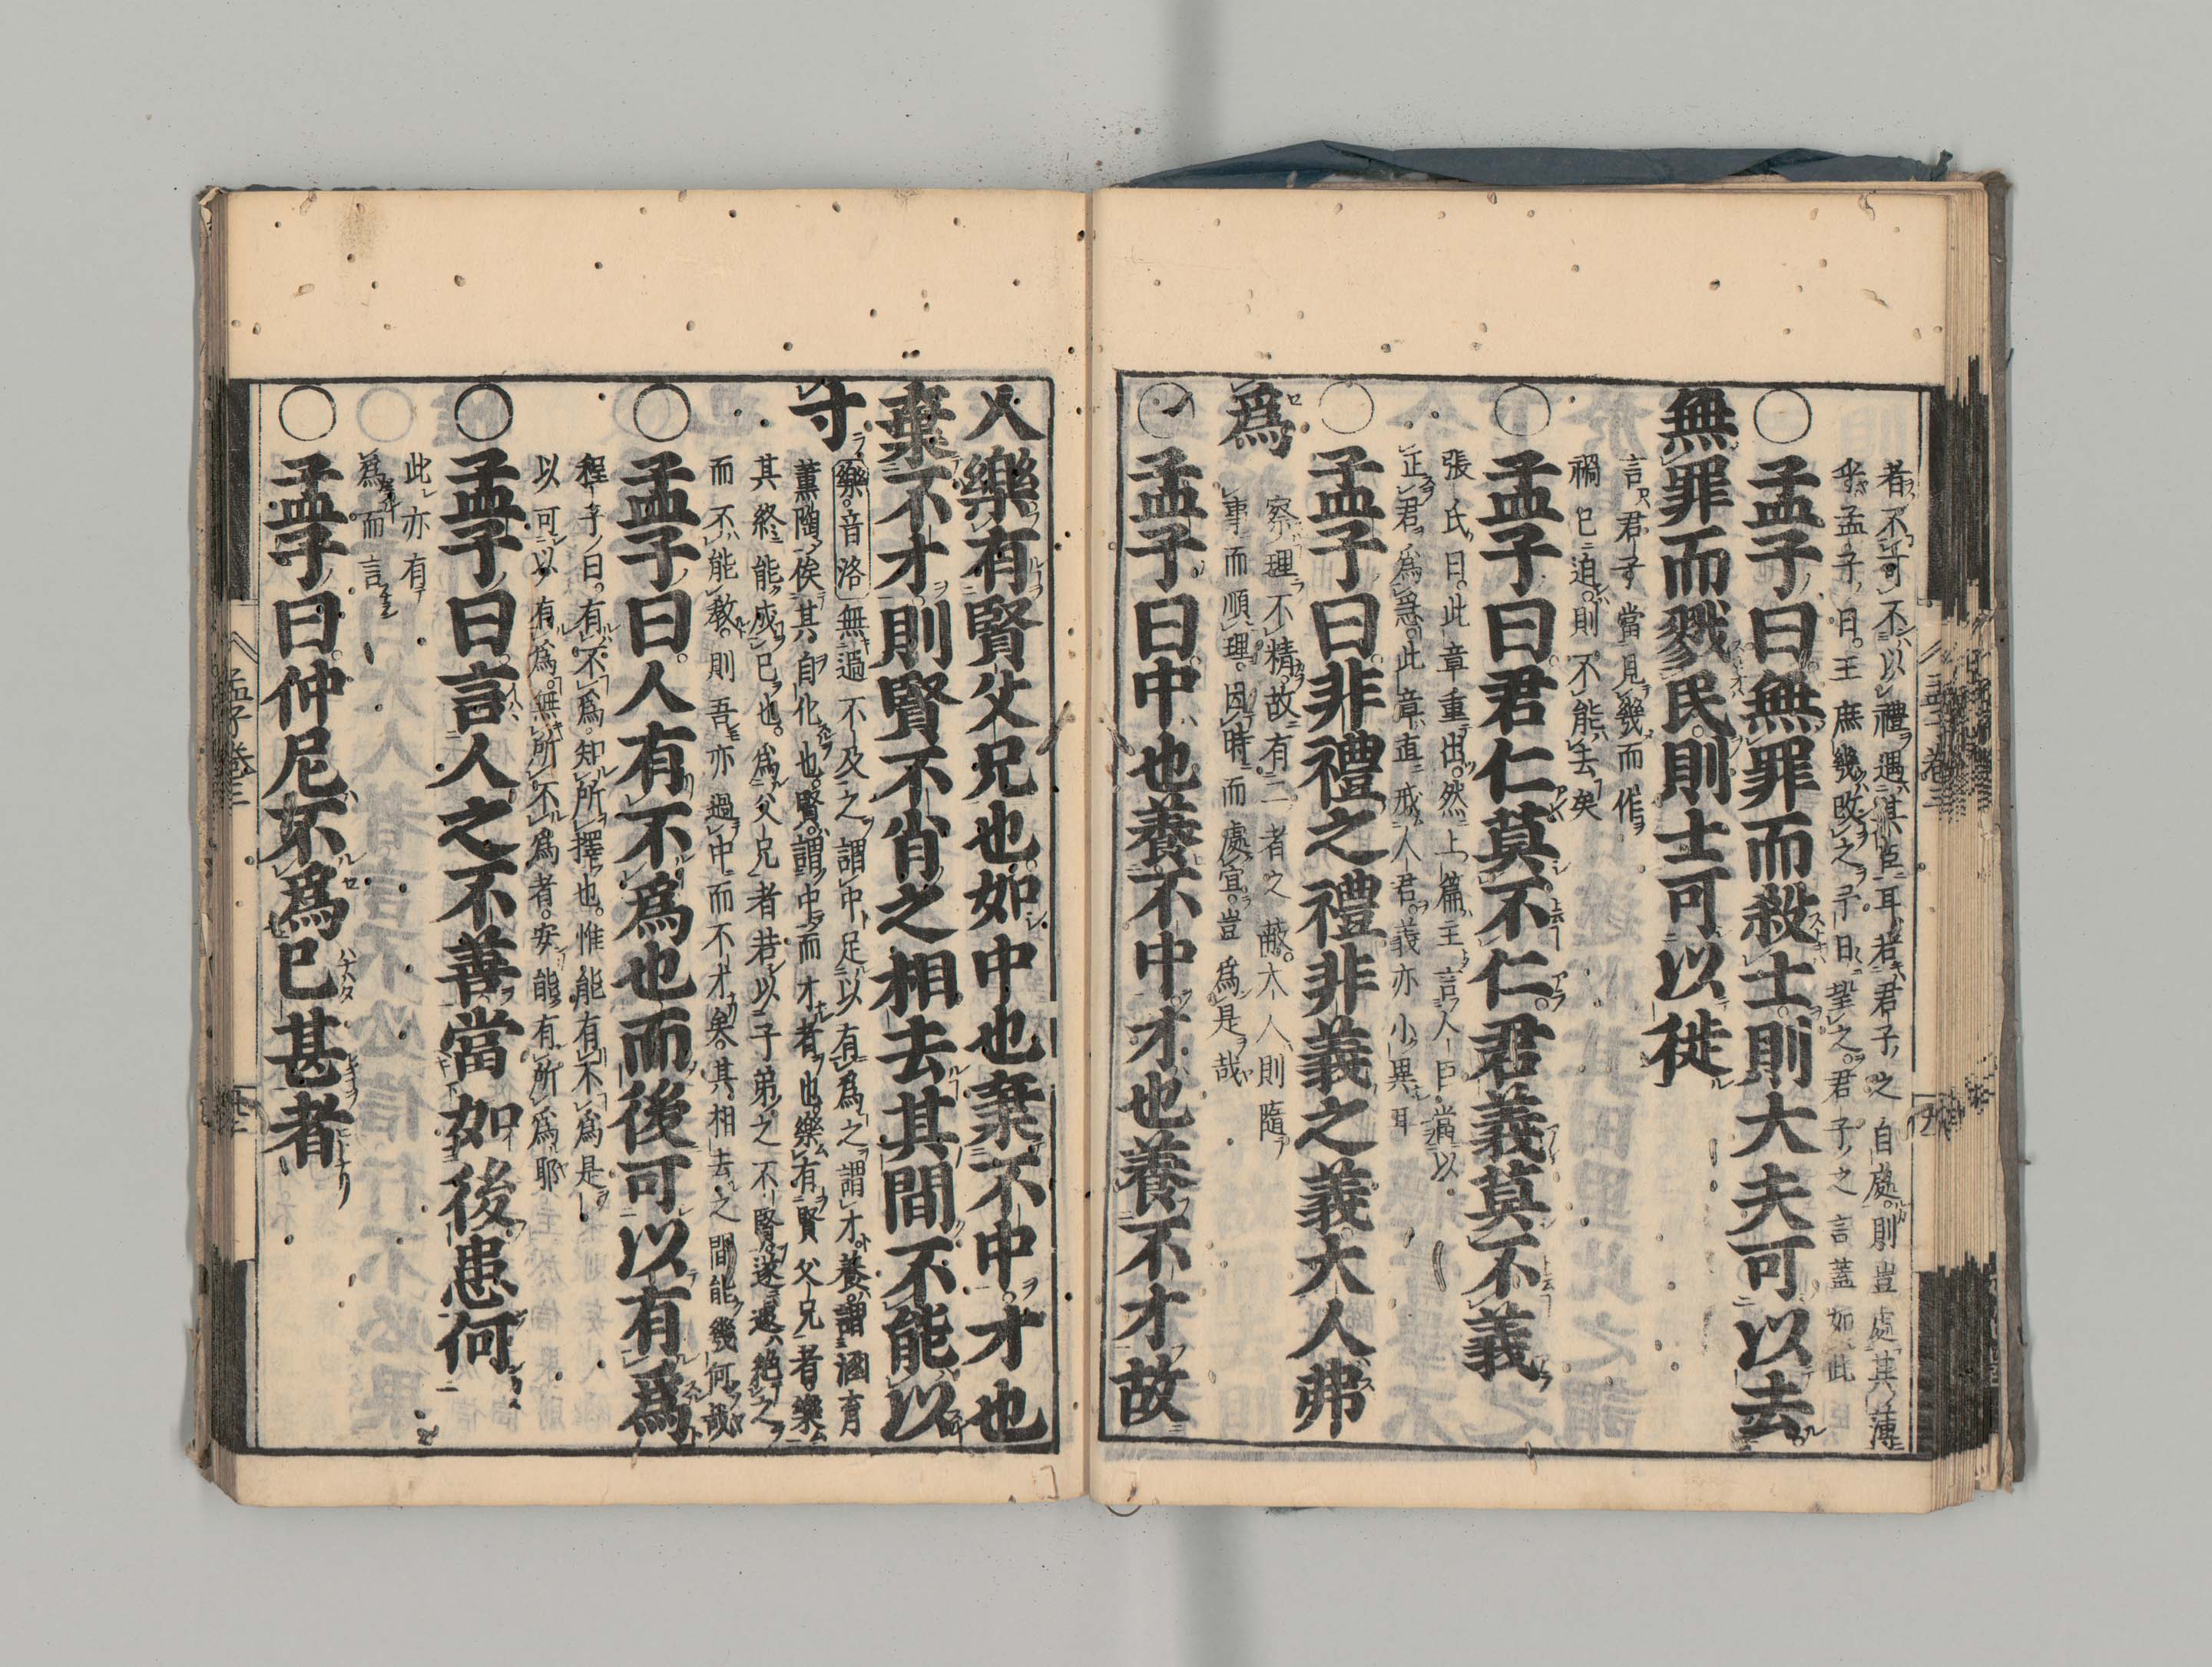 者不可不以禮遇其臣耳若君子之自處則豈處其薄
乎孟子曰王庶幾改之予日望之君子之言蓋如此
○孟子曰無罪而殺士則大夫可以去
無罪而戮民則士可以徙
言君子當見幾而作
禍已迫則不能去矣
○孟子曰君仁莫不仁君義莫不義
張氏曰此章重出然上篇主言人臣當以
正君為急此章直戒人君義亦小異耳
○孟子曰非禮之禮非義之義大人弗
為
察理不精故有二者之蔽大人則隨
事而順理因時而處宜豈為是哉
○孟子曰中也養不中才也養不才故
人樂有賢父兄也如中也棄不中才也
棄不才則賢不肖之相去其間不能以
寸
樂音洛無過不及之謂中足以有為之謂才養謂涵育
薰陶俟其自化也賢謂中而才者也樂有賢父兄者樂
其終能成已也為父兄者若以子弟之不賢遂遽絶之
而不能教則吾亦過中而不才矣其相去之間能幾何哉
○孟子曰人有不為也而後可以有為
程子曰有不為知所擇也惟能有不為是
以可以有為無所不為者安能有所為耶
○孟子曰言人之不善當如後患何
此亦有
為而言
○孟子曰仲尼不為已甚者
孟子卷三